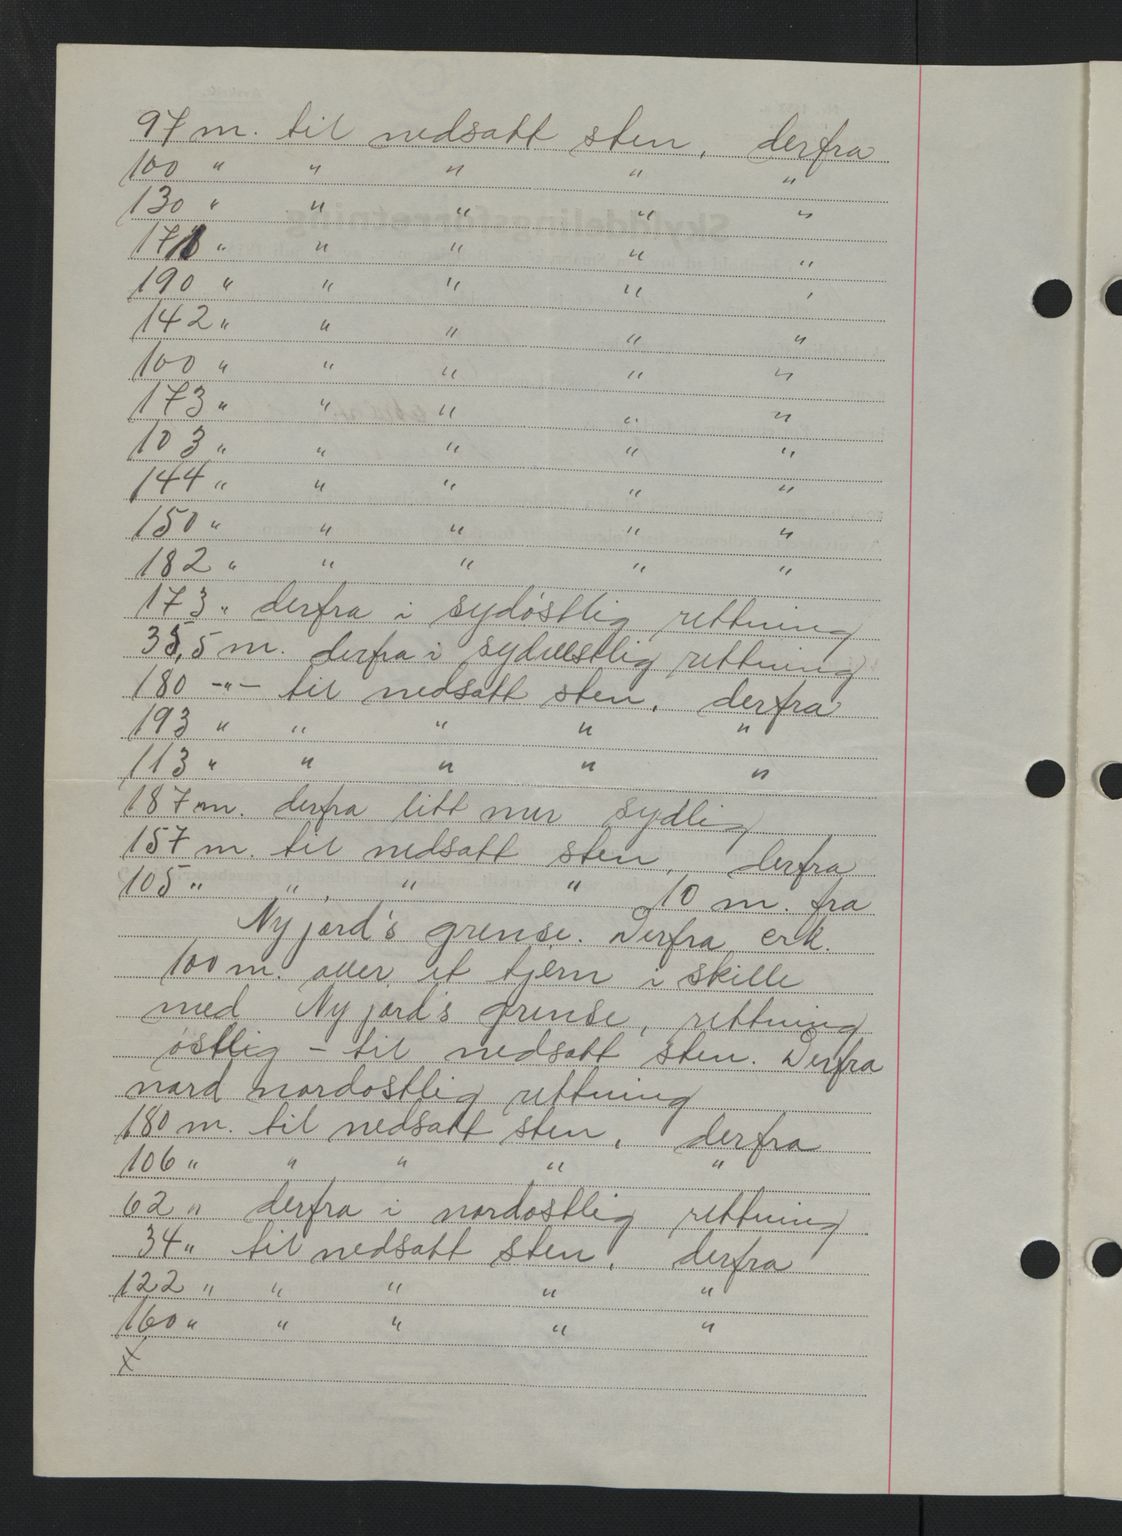 97 m. til nedsatt sten, derfra
100 " " " " "
130 " " " " "
171 " " " " "
190 " " " " "
142 " " " " "
100 " " " " "
173 " " " " "
103 " " " " "
144 " " " " "
150 " " " " "
182 " " " " "
173 " derfra i sydøstlig rettning
35,5 m. derfra i sydvestlig rettning
180 -"- til nedsatt sten, derfra
193 " " " " "
113 " " " " "
187 m. derfra litt mer sydlig
157 m. til nedsatt sten, derfra
105 " " " " 10 m. fra
Nyjord's grense. Derfra cirk.
100 m. over et tjern i skille
med Nyjord's grense, rettning
østlig - til nedsatt sten. Derfra
nord nordostlig rettning
180 m. til nedsatt sten, derfra
106 " " " " "
62 " derfra i nordostlig rettning
34 " til nedsatt sten, derfra
122 " " " " "
160 " " " " "